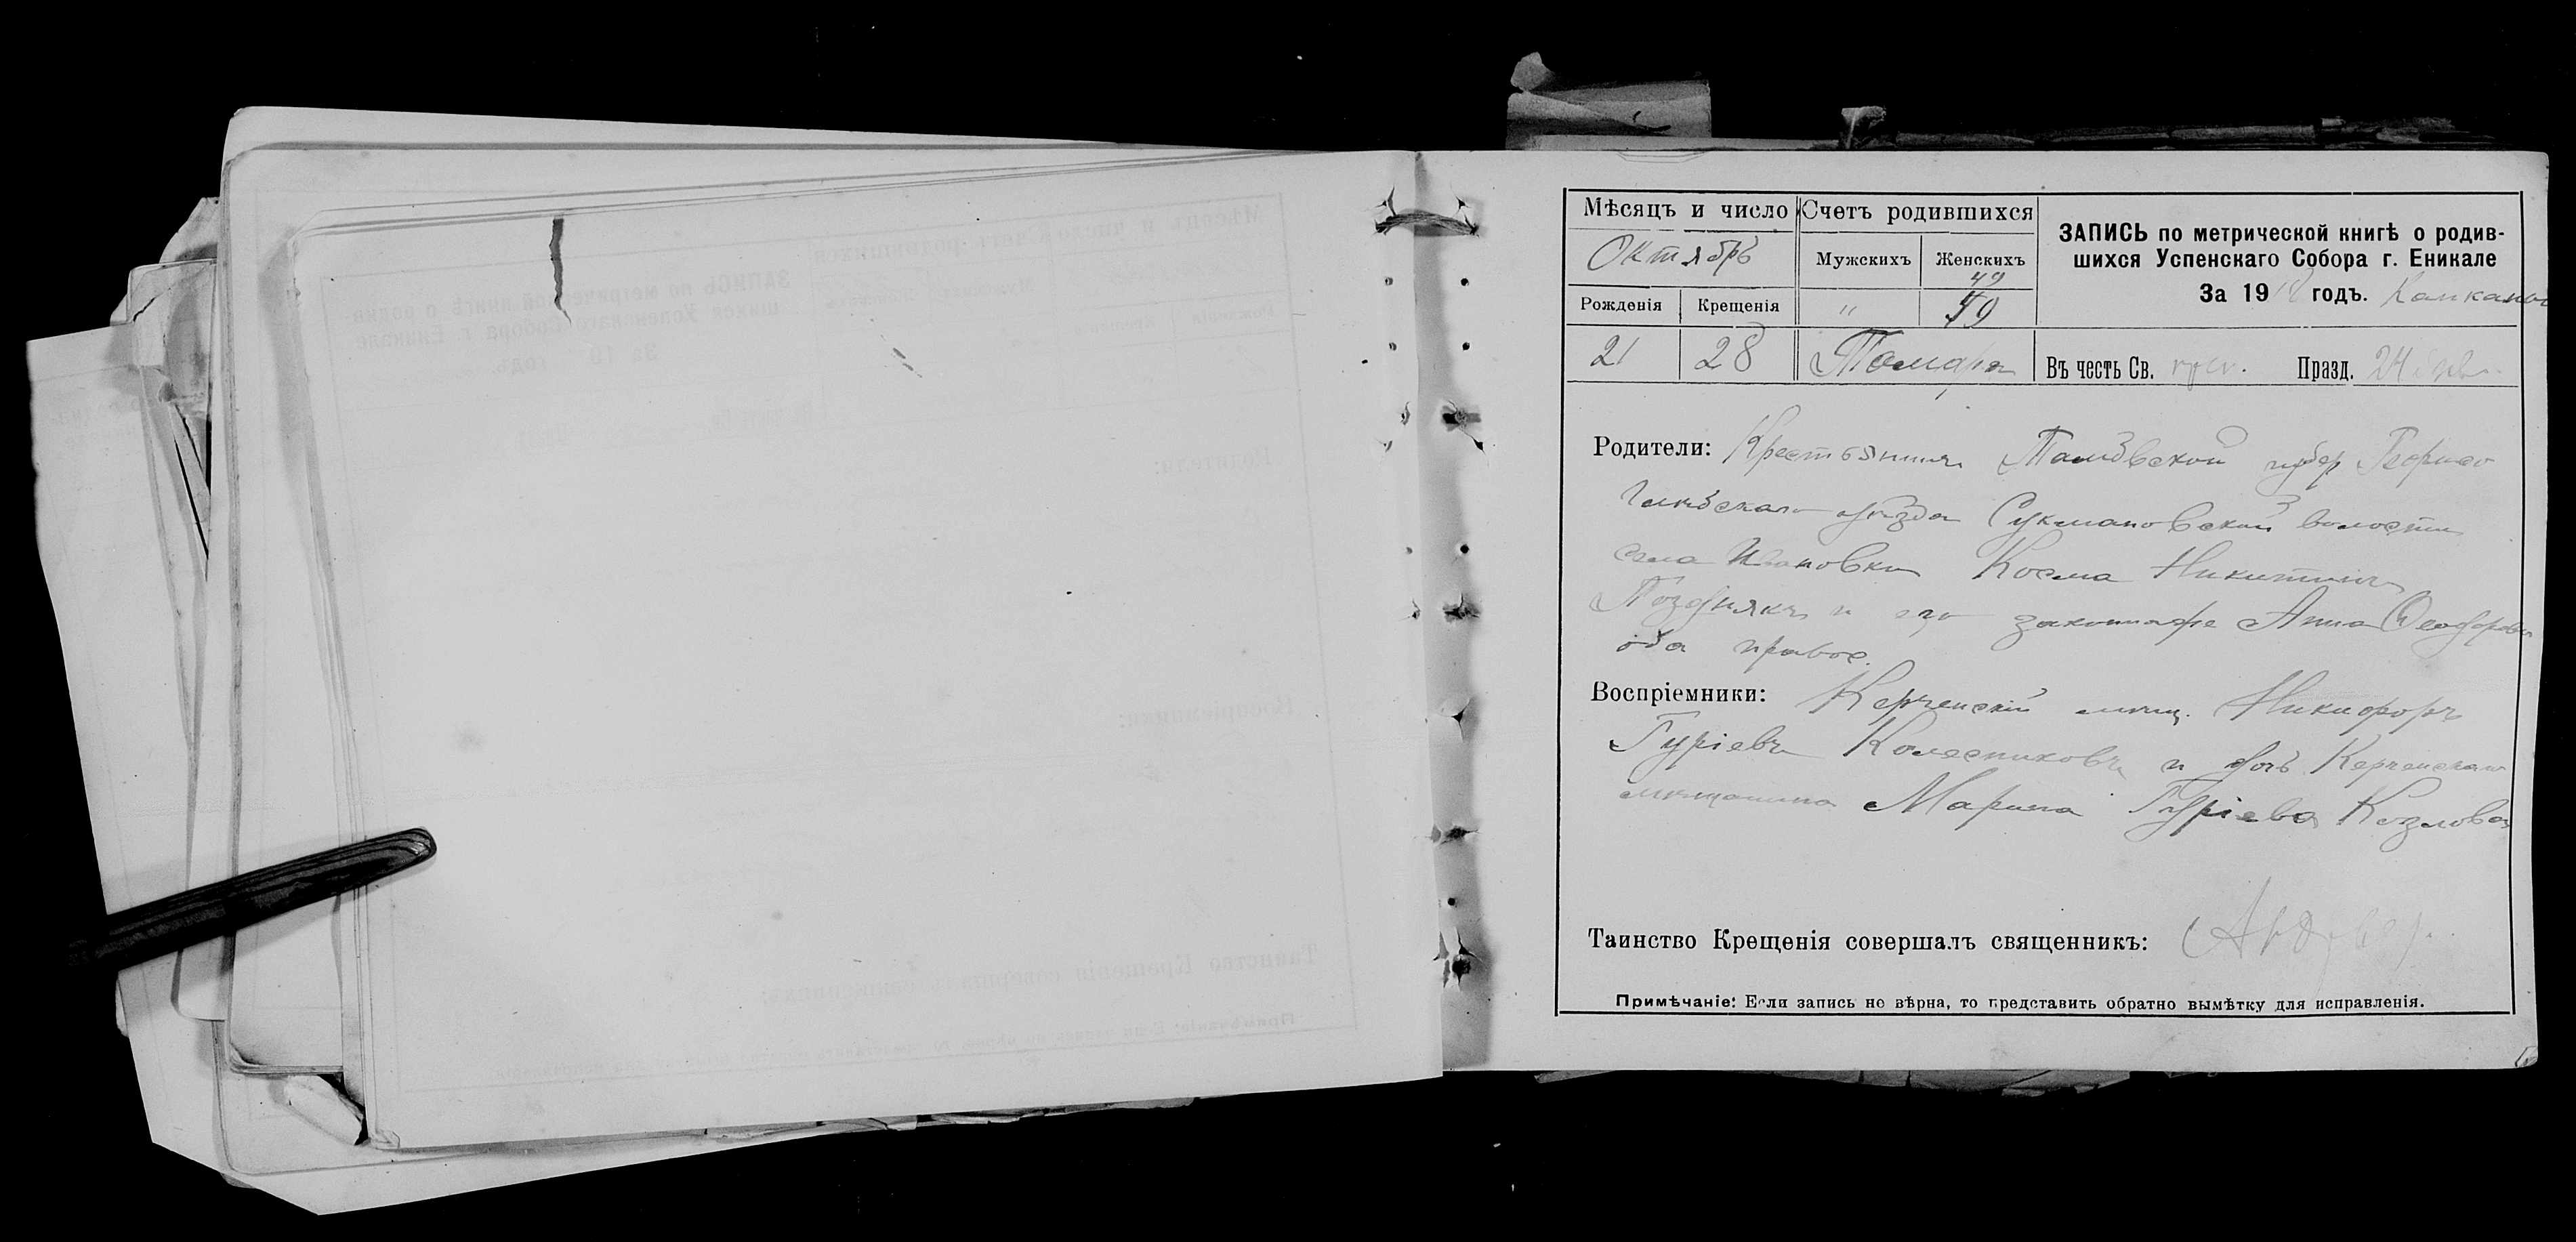 Мѣсяцъ и число
Октябрь
Рожденія Крещенія
21 28
Счетъ родившихся
Мужскихъ Женскихъ
49
" 49
Тамара
ЗАПИСЬ по метрической книгѣ о родив-
шихся Успенскаго Собора г. Еникале
За 1918 годъ.
Въ честь Св. Празд. 24
Родители: Крестьянинъ Тамбовской губер Борисо
глѣбскаго уѣзда Сукмановской волости
села Ивановки Косма Никитинъ
Позднякъ и его Анна Ѳеодорова
оба правос.
Воспріемники: Керченскій мѣщ. Никифоръ
Гуріевъ Колесниковъ и дочь Керченскаго
мѣщанина Марина Гуріева Козлова
Таинство Крещенія совершалъ священникъ:
Примѣчаніе: Если запись не вѣрна, то представить обратно вымѣтку для исправленія.